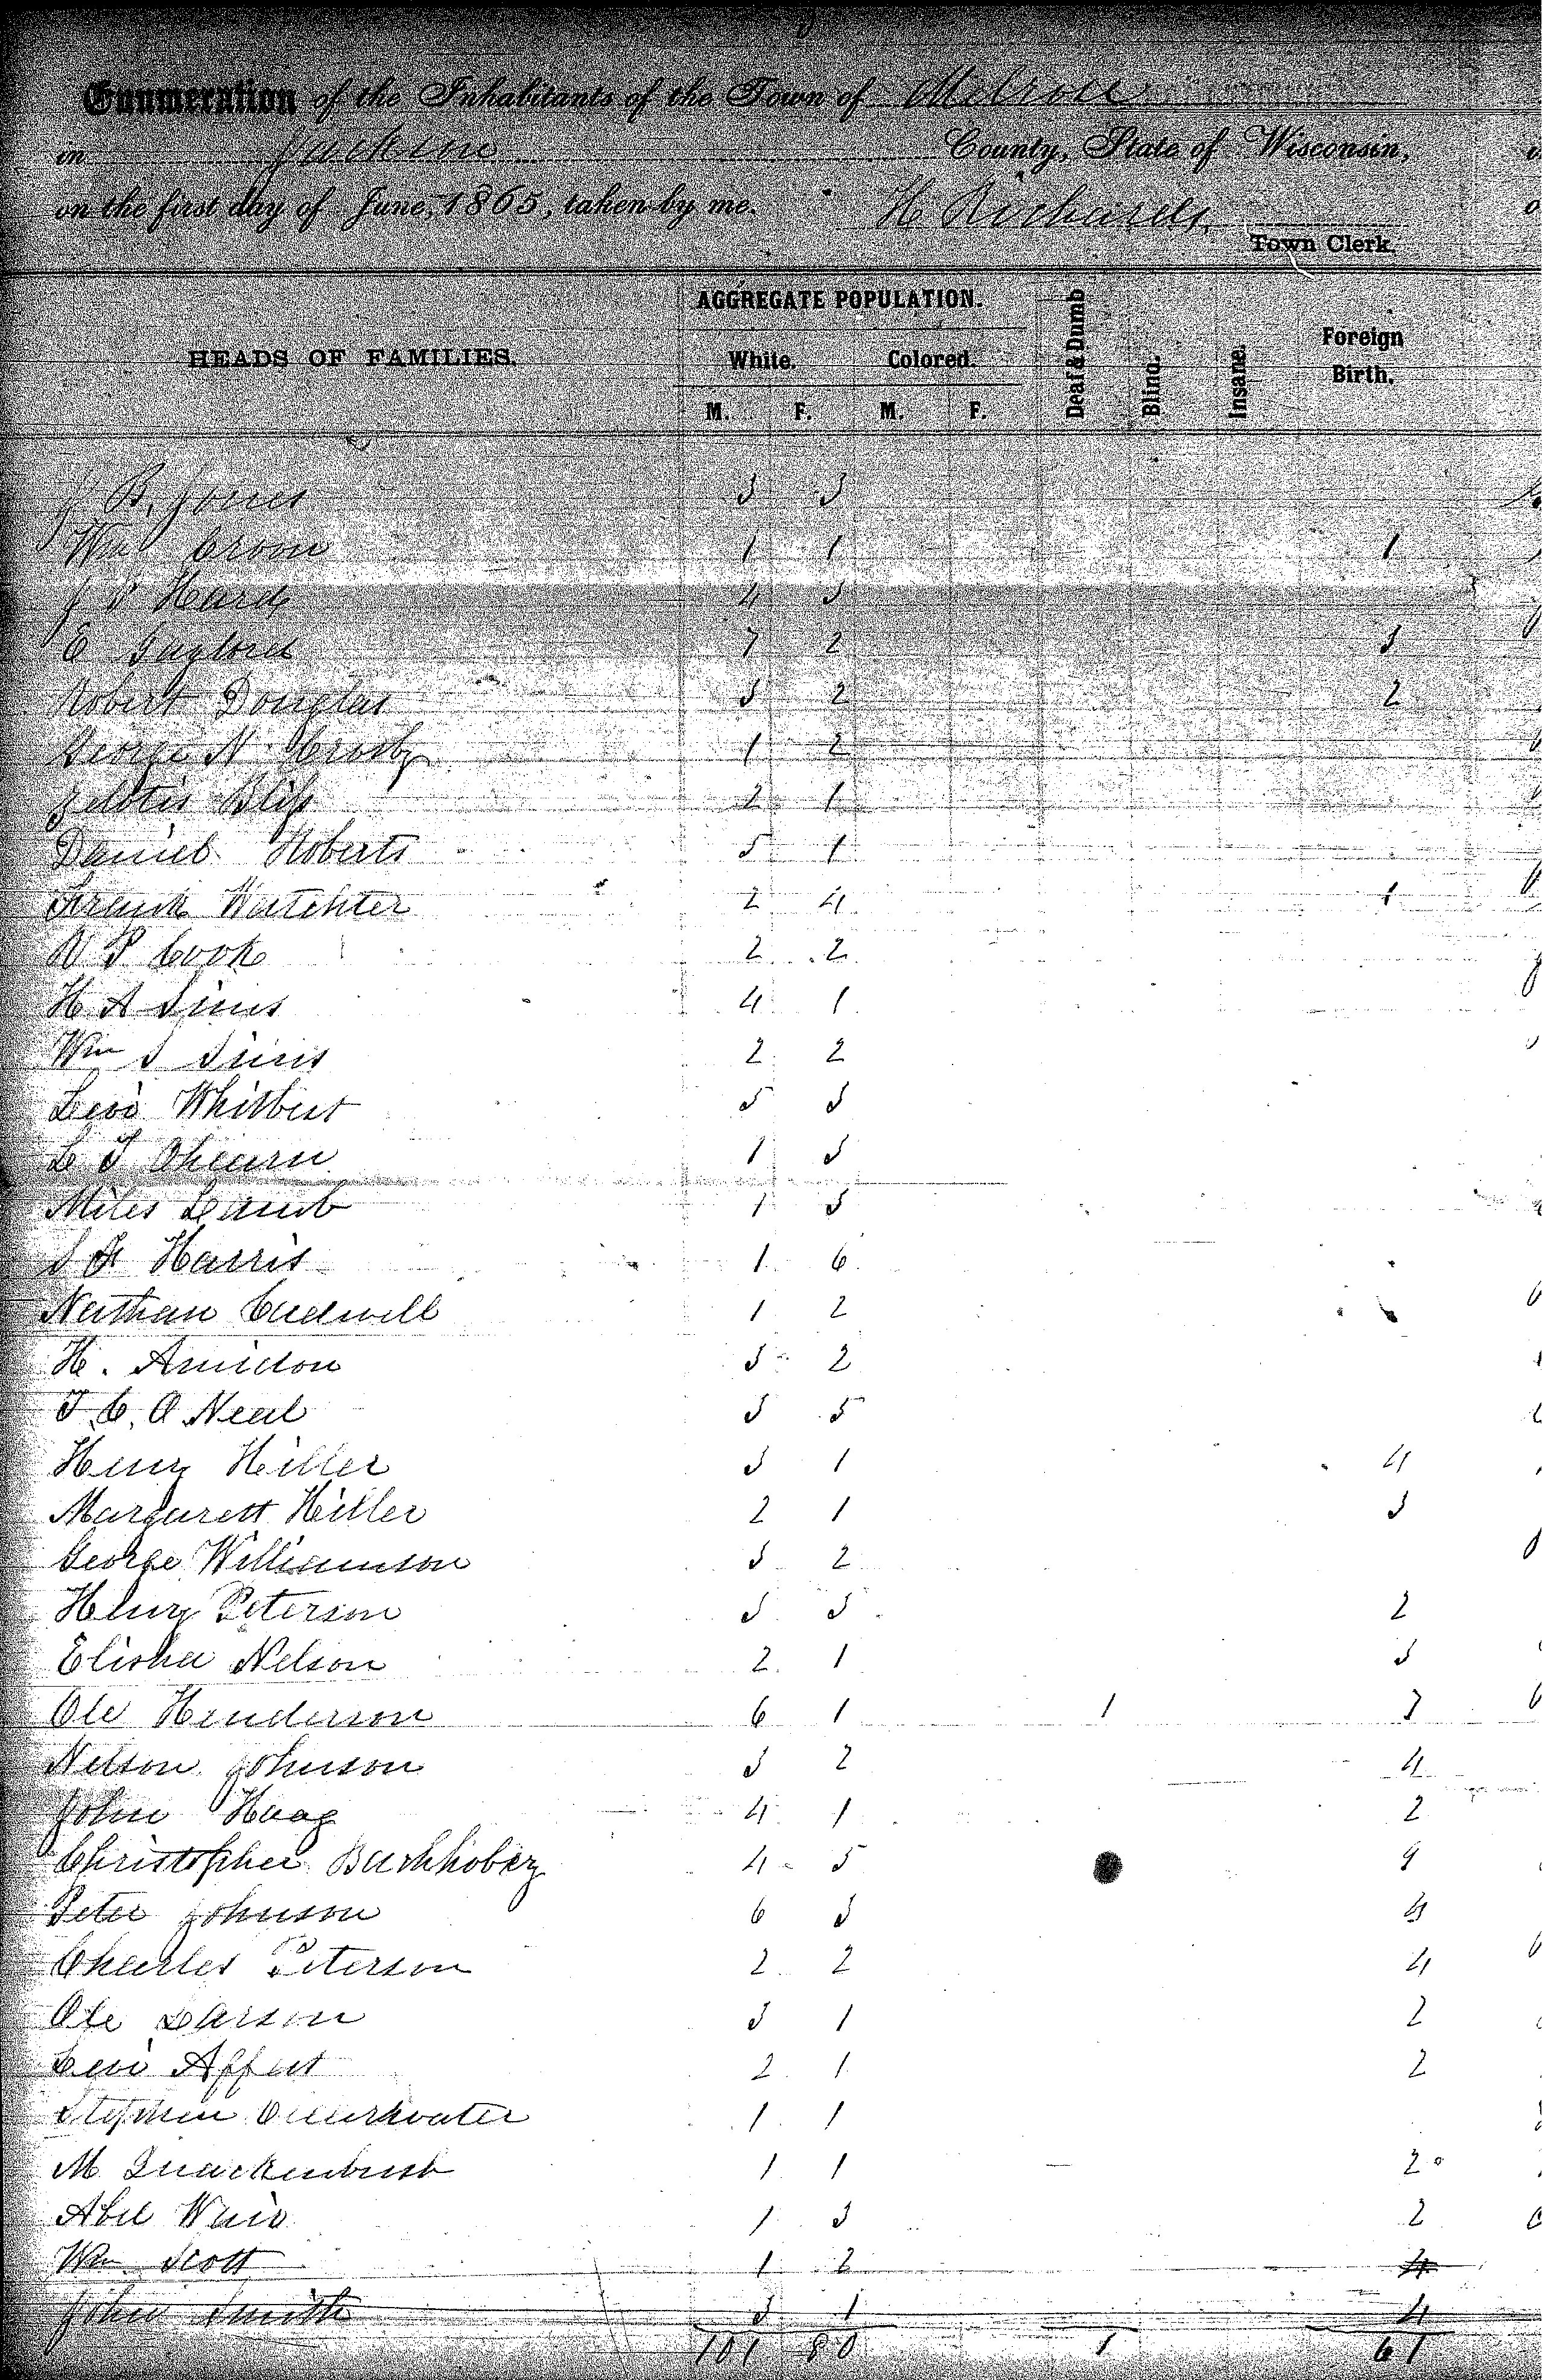 Enumeration of the Inhabitants of the Town of Melrose
in Jackson County, State of Wisconsin,
on the first day of June, 1865, taken by me. H Richards,
Town Clerk.
HEADS OF FAMILIES.
AGGREGATE POPULATION.
White. Colored.
M. F. M. F.
Deaf & Dumb
Blind.
Insane.
Foreign Birth.
J B. Jones 3 3
Wm 1 1 1
J P Hard 4 3
E Gaylord 7 2 3
Robert Douglas 3 2 2
George N Crosby 1 2
Zelotis Bliss 2 1
Daniel Roberts 5 1
Frank Watchter 2 4 1
P Cook 2 2
H A Sims 4 1
Wm S Sims 2 2
Levi 5 3
L T 1 3
Miles Lamb 1 3
S F Harris 1 6
Nathan Cadwell 1 2
H. Amidon 3 2
T. C. O Neal 3 5
Henry Hiller 3 1 4
Margarett Hiller 2 1 3
George Williamson 3 2
Henry Peterson 3 3 2
Elisha Nelson 2 1 3
Ole Henderson 6 1 1 7
Nelson Johnson 3 2 4
John Haag 4 1 2
Christopher 4 5 9
Peter Johnson 6 3 4
Charles Peterson 2 2 4
Ole Larson 3 1 2
Levi 2 1 2
Stephen 1 1
M Quackenbush 1 1 2
Abel Weir 1 3 2
Wm Scott 1 2
John Smith 3 1 4
101 80 1 61